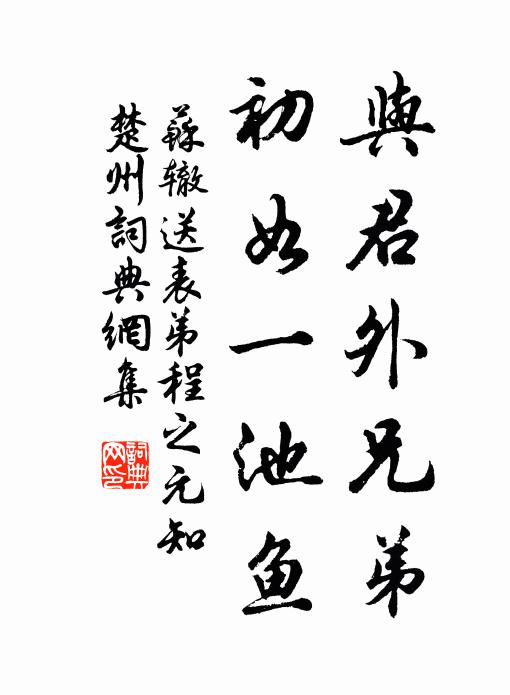 與君外兄弟
初如一池鱼
蘇辙送表弟程之元知
楚州詞典網集
詞典
网印